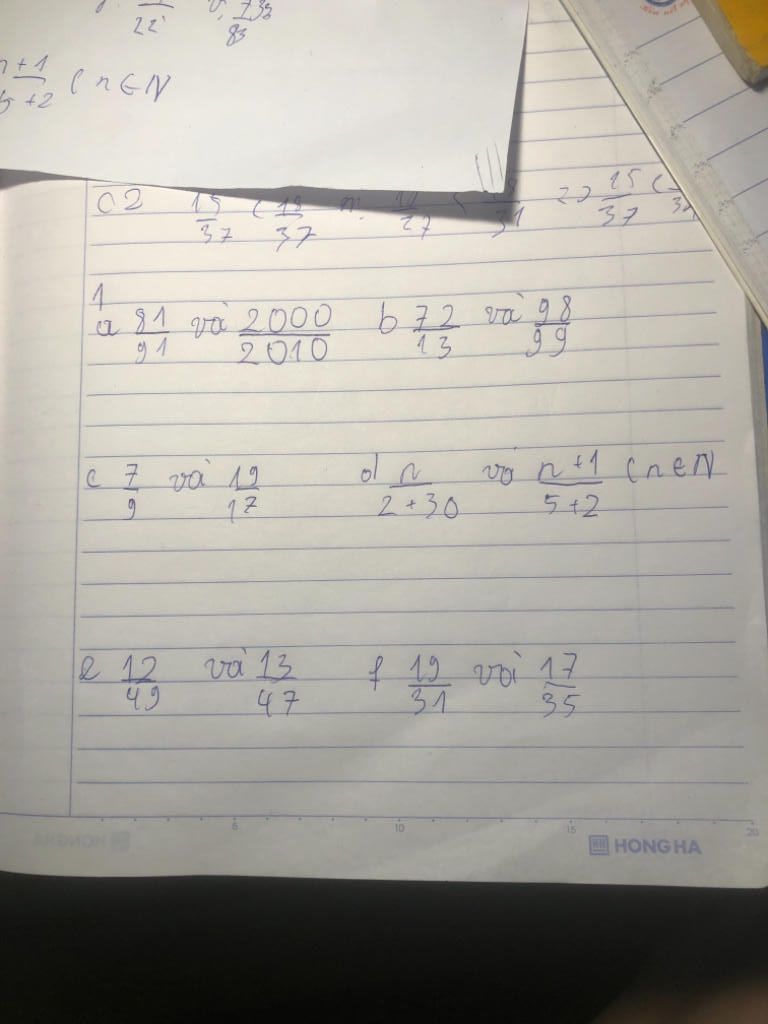 22
83
n+1
5+2 ( n ∈ N
c2 15/37 < 18/37 => 15/37 <
1
a 81/91 và 2000/2010 b 72/13 và 98/99
c 7/9 và 19/17 d n/2+30 và n+1/5+2 ( n ∈ N
e 12/49 và 13/47 f 19/31 với 17/35
5 10 15 20
HH HONG HA